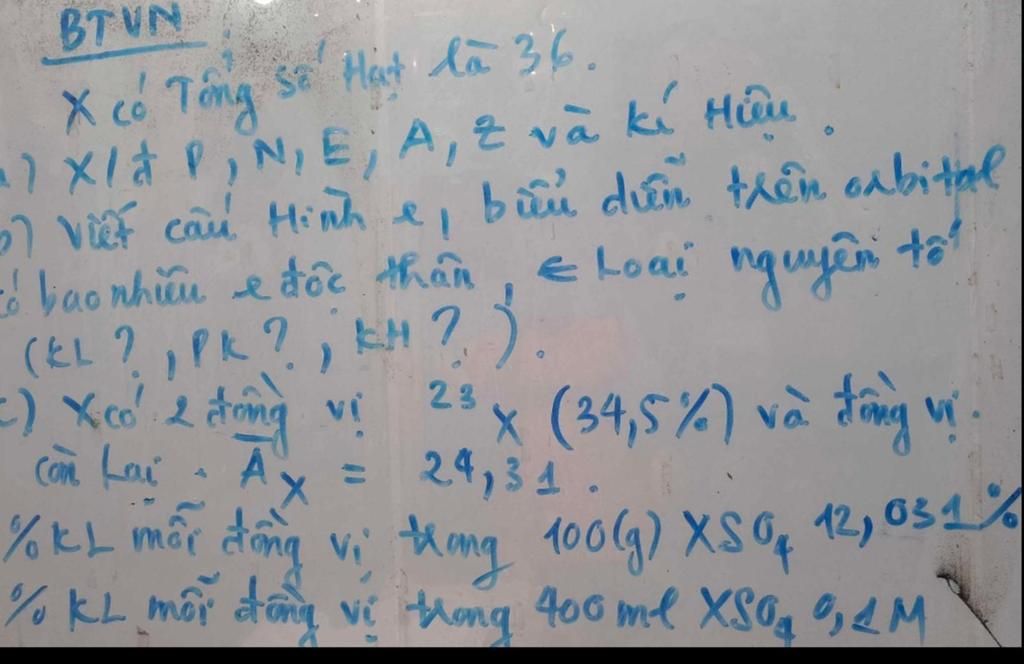 BTVN
X có Tổng số Hạt là 36.
a) X/đ P, N, E, A, Z và kí Hiệu.
b) Viết cấu Hình e, biểu diễn trên orbital
có bao nhiêu e độc thân, ∈ Loại nguyên tố
(KL?, PK?, KH?).
c) X có 2 đồng vị ²³X (34,5%) và đồng vị
còn Lại. Ā_X = 24,31.
%KL mỗi đồng vị trong 100(g) XSO₄ 12,031%
%KL mỗi đồng vị trong 400ml XSO₄ 0,1M